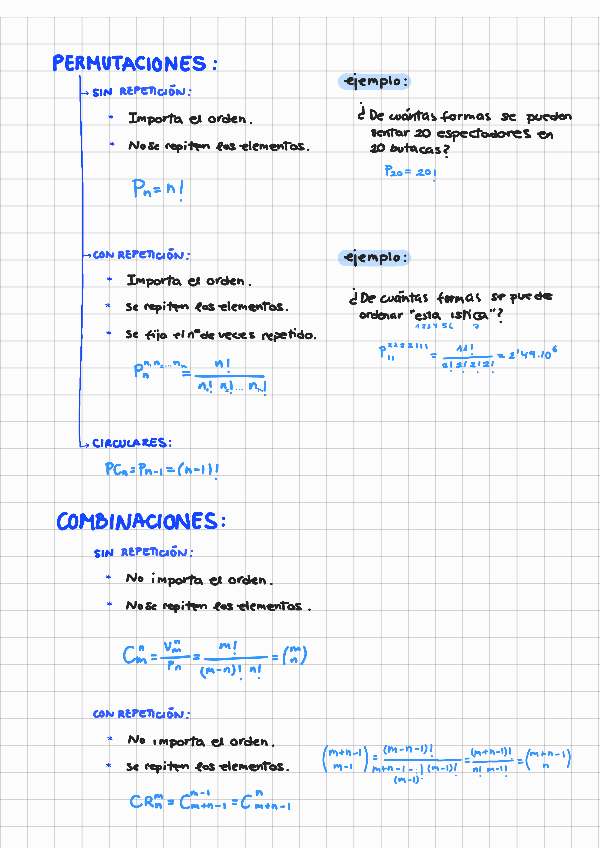 PERMUTACIONES:
SIN REPETICIÓN:
* Importa el orden.
* No se repiten los elementos.
Pn = n!
ejemplo:
¿De cuántas formas se pueden
sentar 20 espectadores en
20 butacas?
P20 = 20!
CON REPETICIÓN:
* Importa el orden.
* Se repiten los elementos.
* Se fija el nº de veces repetido.
Pn^n1,n2...nn = n! / n1! n2!... nn!
ejemplo:
¿De cuántas formas se puede
ordenar "esta istica"?
P11^2222111 = 11! / 2!2!2!2! = 2'49·10^6
CIRCULARES:
PCn = Pn-1 = (n-1)!
COMBINACIONES:
SIN REPETICIÓN:
* No importa el orden.
* No se repiten los elementos.
Cm^n = Vm^n / Pn = m! / (m-n)! n! = (m n)
CON REPETICIÓN:
* No importa el orden.
* Se repiten los elementos.
CRn^m = Cm+n-1^n-1 = Cm+n-1^n
(m+n-1 m-1) = (m-n-1)! / (m-1)! = (m+n-1)! / n! m-1! = (m+n-1 n)